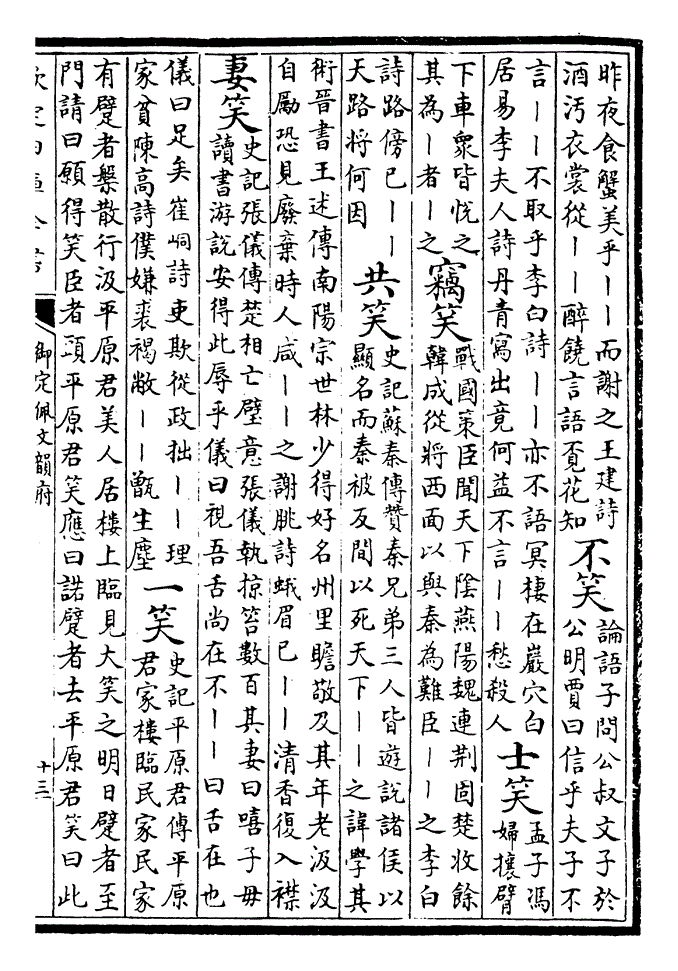 昨夜食蟹美乎丨丨而謝之王建詩
酒汚衣裳從丨丨醉饒言語覔花知
不笑
論語子問公叔文子於
公明賈曰信乎夫子不
言丨丨不取乎李白詩丨丨亦不語冥棲在巖穴白
居易李夫人詩丹青寫出竟何益不言丨丨愁殺人
士笑
孟子馮
婦攘臂
下車衆皆悅之
其為丨者丨之
竊笑
戰國策臣聞天下隂燕陽魏連荆固楚收餘
韓成從將西面以與秦為難臣丨丨之李白
詩路傍已丨丨
天路将何因
共笑
史記蘇秦傳贊秦兄弟三人皆遊說諸侯以
顯名而秦被反間以死天下丨丨之諱學其
術晉書王述傳南陽宗世林少得好名州里瞻敬及其年老汲汲
自勵恐見廢棄時人咸丨丨之謝朓詩蛾眉已丨丨清香復入襟
妻笑
史記張儀傳楚相亡璧意張儀執掠笞數百其妻曰嘻子毋
讀書游說安得此辱乎儀曰視吾舌尚在不丨丨曰舌在也
儀曰足矣崔峒詩吏欺從政拙丨丨理
家貧陳高詩僕嫌裘褐敝丨丨甑生塵
一笑
史記平原君傳平原
君家樓臨民家民家
有躄者槃散行汲平原君美人居樓上臨見大笑之明日躄者至
門請曰願得笑臣者頭平原君笑應曰諾躄者去平原君笑曰此
欽定四庫全書
御定佩文韻府
十三